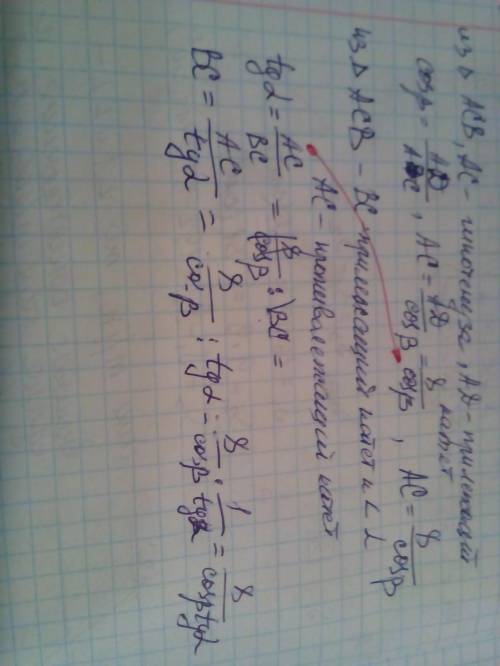 из △ ACB, AC - гипотенуза, AD - прилежащий катет
cosβ = AD/AC, AC = AD/cosβ = 8/cosβ, AC = 8/cosβ
из △ ACB - BC прилежащий катет к ∠ α
AC - противолежащий катет
tgα = AC/BC = 8/cosβ : BC =
BC = AC/tgα = 8/cosβ : tgα = 8/cosβ · 1/tgα = 8/cosβtgα